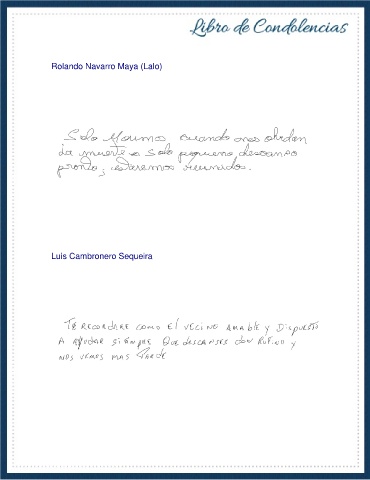 Libro de Condolencias
Rolando Navarro Maya (Lalo)
Solo Morimos cuando nos olvidan
la muerte es solo pequeño descanso
pronto, estaremos reunidos.
Luis Cambronero Sequeira
Te recordare como el vecino amable y dispuesto
a ayudar siempre Que descanses don Rufino y
nos vemos mas tarde